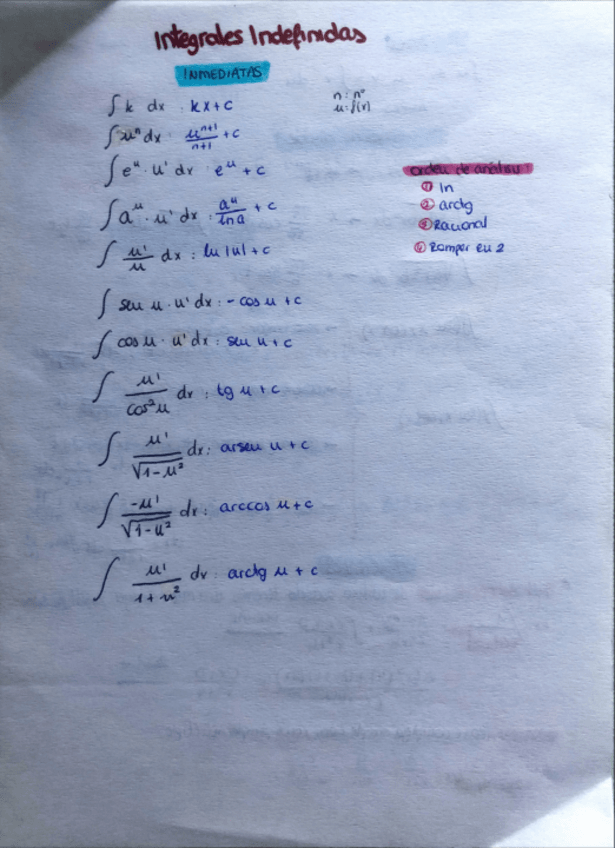 Integrales Indefinidas
INMEDIATAS
∫ k dx : kx + c
n : nº
u : f(x)
∫ uⁿ dx : uⁿ⁺¹/n+1 + c
∫ eᵘ · u' dx : eᵘ + c
orden de análisis
① ln
② arctg
③ Racional
④ Romper en 2
∫ aᵘ · u' dx : aᵘ/ln a + c
∫ u'/u dx : ln |u| + c
∫ sen u · u' dx : - cos u + c
∫ cos u · u' dx : sen u + c
∫ u'/cos² u dx : tg u + c
∫ u'/√1-u² dx : arsen u + c
∫ -u'/√1-u² dx : arccos u + c
∫ u'/1+u² dx : arctg u + c